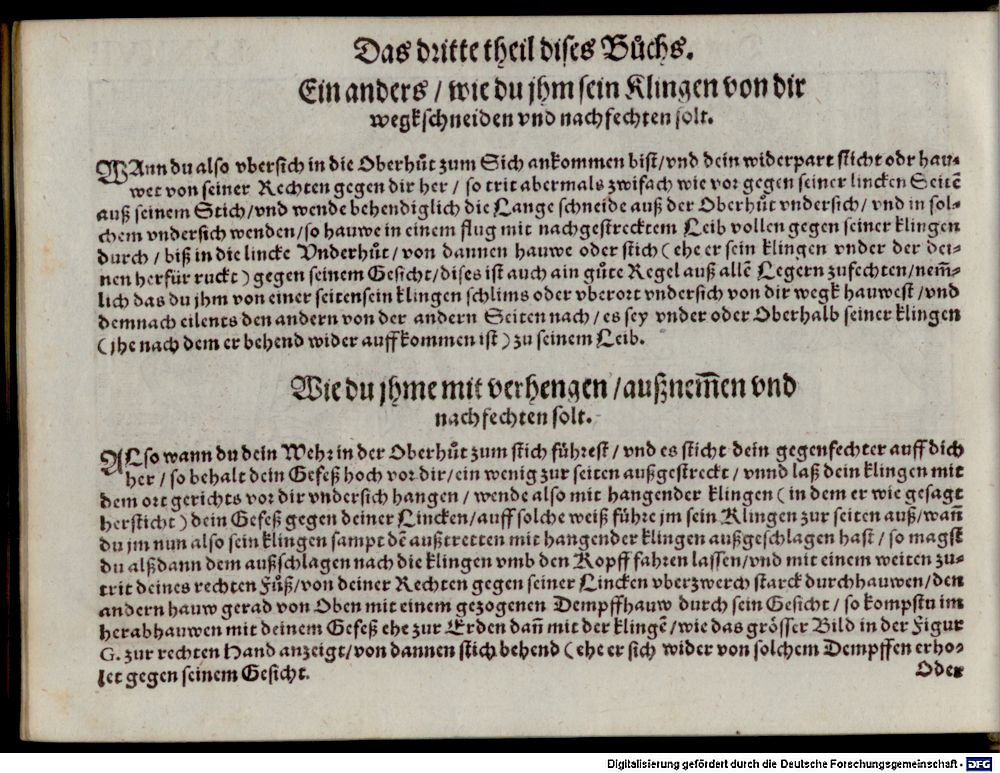 Das dritte theil dises Bůchs.
Ein anders / wie du jhm sein Klingen von dir
wegkschneiden vnd nachfechten solt.
WAnn du also vbersich in die Oberhůt zum Stich ankommen bist/vnd dein widerpart sticht odr hau-
wet von seiner Rechten gegen dir her / so trit abermals zwifach wie vor gegen seiner lincken Seitē
auß seinem Stich/vnd wende behendiglich die Lange schneide auß der Oberhůt vndersich/ vnd in sol-
chem vndersich wenden/so hauwe in einem flug mit nachgestrecktem Leib vollen gegen seiner klingen
durch / biß in die lincke Vnderhůt/ von dannen hauwe oder stich ( ehe er sein klingen vnder der dei-
nen herfür ruckt ) gegen seinem Gesicht/dises ist auch ain gůte Regel auß allē Legern zufechten/nem̄-
lich das du jhm von einer seitensein klingen schlims oder vberort vndersich von dir wegk hauwest/vnd
demnach eilents den andern von der andern Seiten nach/es sey vnder oder Oberhalb seiner klingen
(jhe nach dem er behend wider auffkommen ist ) zu seinem Leib.
Wie du jhme mit verhengen /außnem̄en vnd
nachfechten solt.
ALso wann du dein Wehr in der Oberhůt zum stich führest / vnd es sticht dein gegenfechter auff dich
her / so behalt dein Gefeß hoch vor dir/ein wenig zur seiten außgestreckt / vnnd laß dein klingen mit
dem ort gerichts vor dir vndersich hangen / wende also mit hangender klingen ( in dem er wie gesagt
hersticht ) dein Gefeß gegen deiner Lincken/auff solche weiß führe jm sein Klingen zur seiten auß/wañ
du jm nun also sein klingen sampt dē außtretten mit hangender klingen außgeschlagen hast / so magst
du alßdann dem außschlagen nach die klingen vmb den Kopff fahren lassen/vnd mit einem weiten zu-
trit deines rechten Fůß/von deiner Rechten gegen seiner Lincken vberzwerch starck durchhauwen/den
andern hauw gerad von Oben mit einem gezogenen Dempffhauw durch sein Gesicht / so kompstu im
herabhauwen mit deinem Gefeß ehe zur Erden dañ mit der klingē/wie das grösser Bild in der Figur
G. zur rechten Hand anzeigt/von dannen stich behend (ehe er sich wider von solchem Dempffen erho-
let gegen seinem Gesicht.
Oder
Digitalisierung gefördert durch die Deutsche Forschungsgemeinschaft - DFG